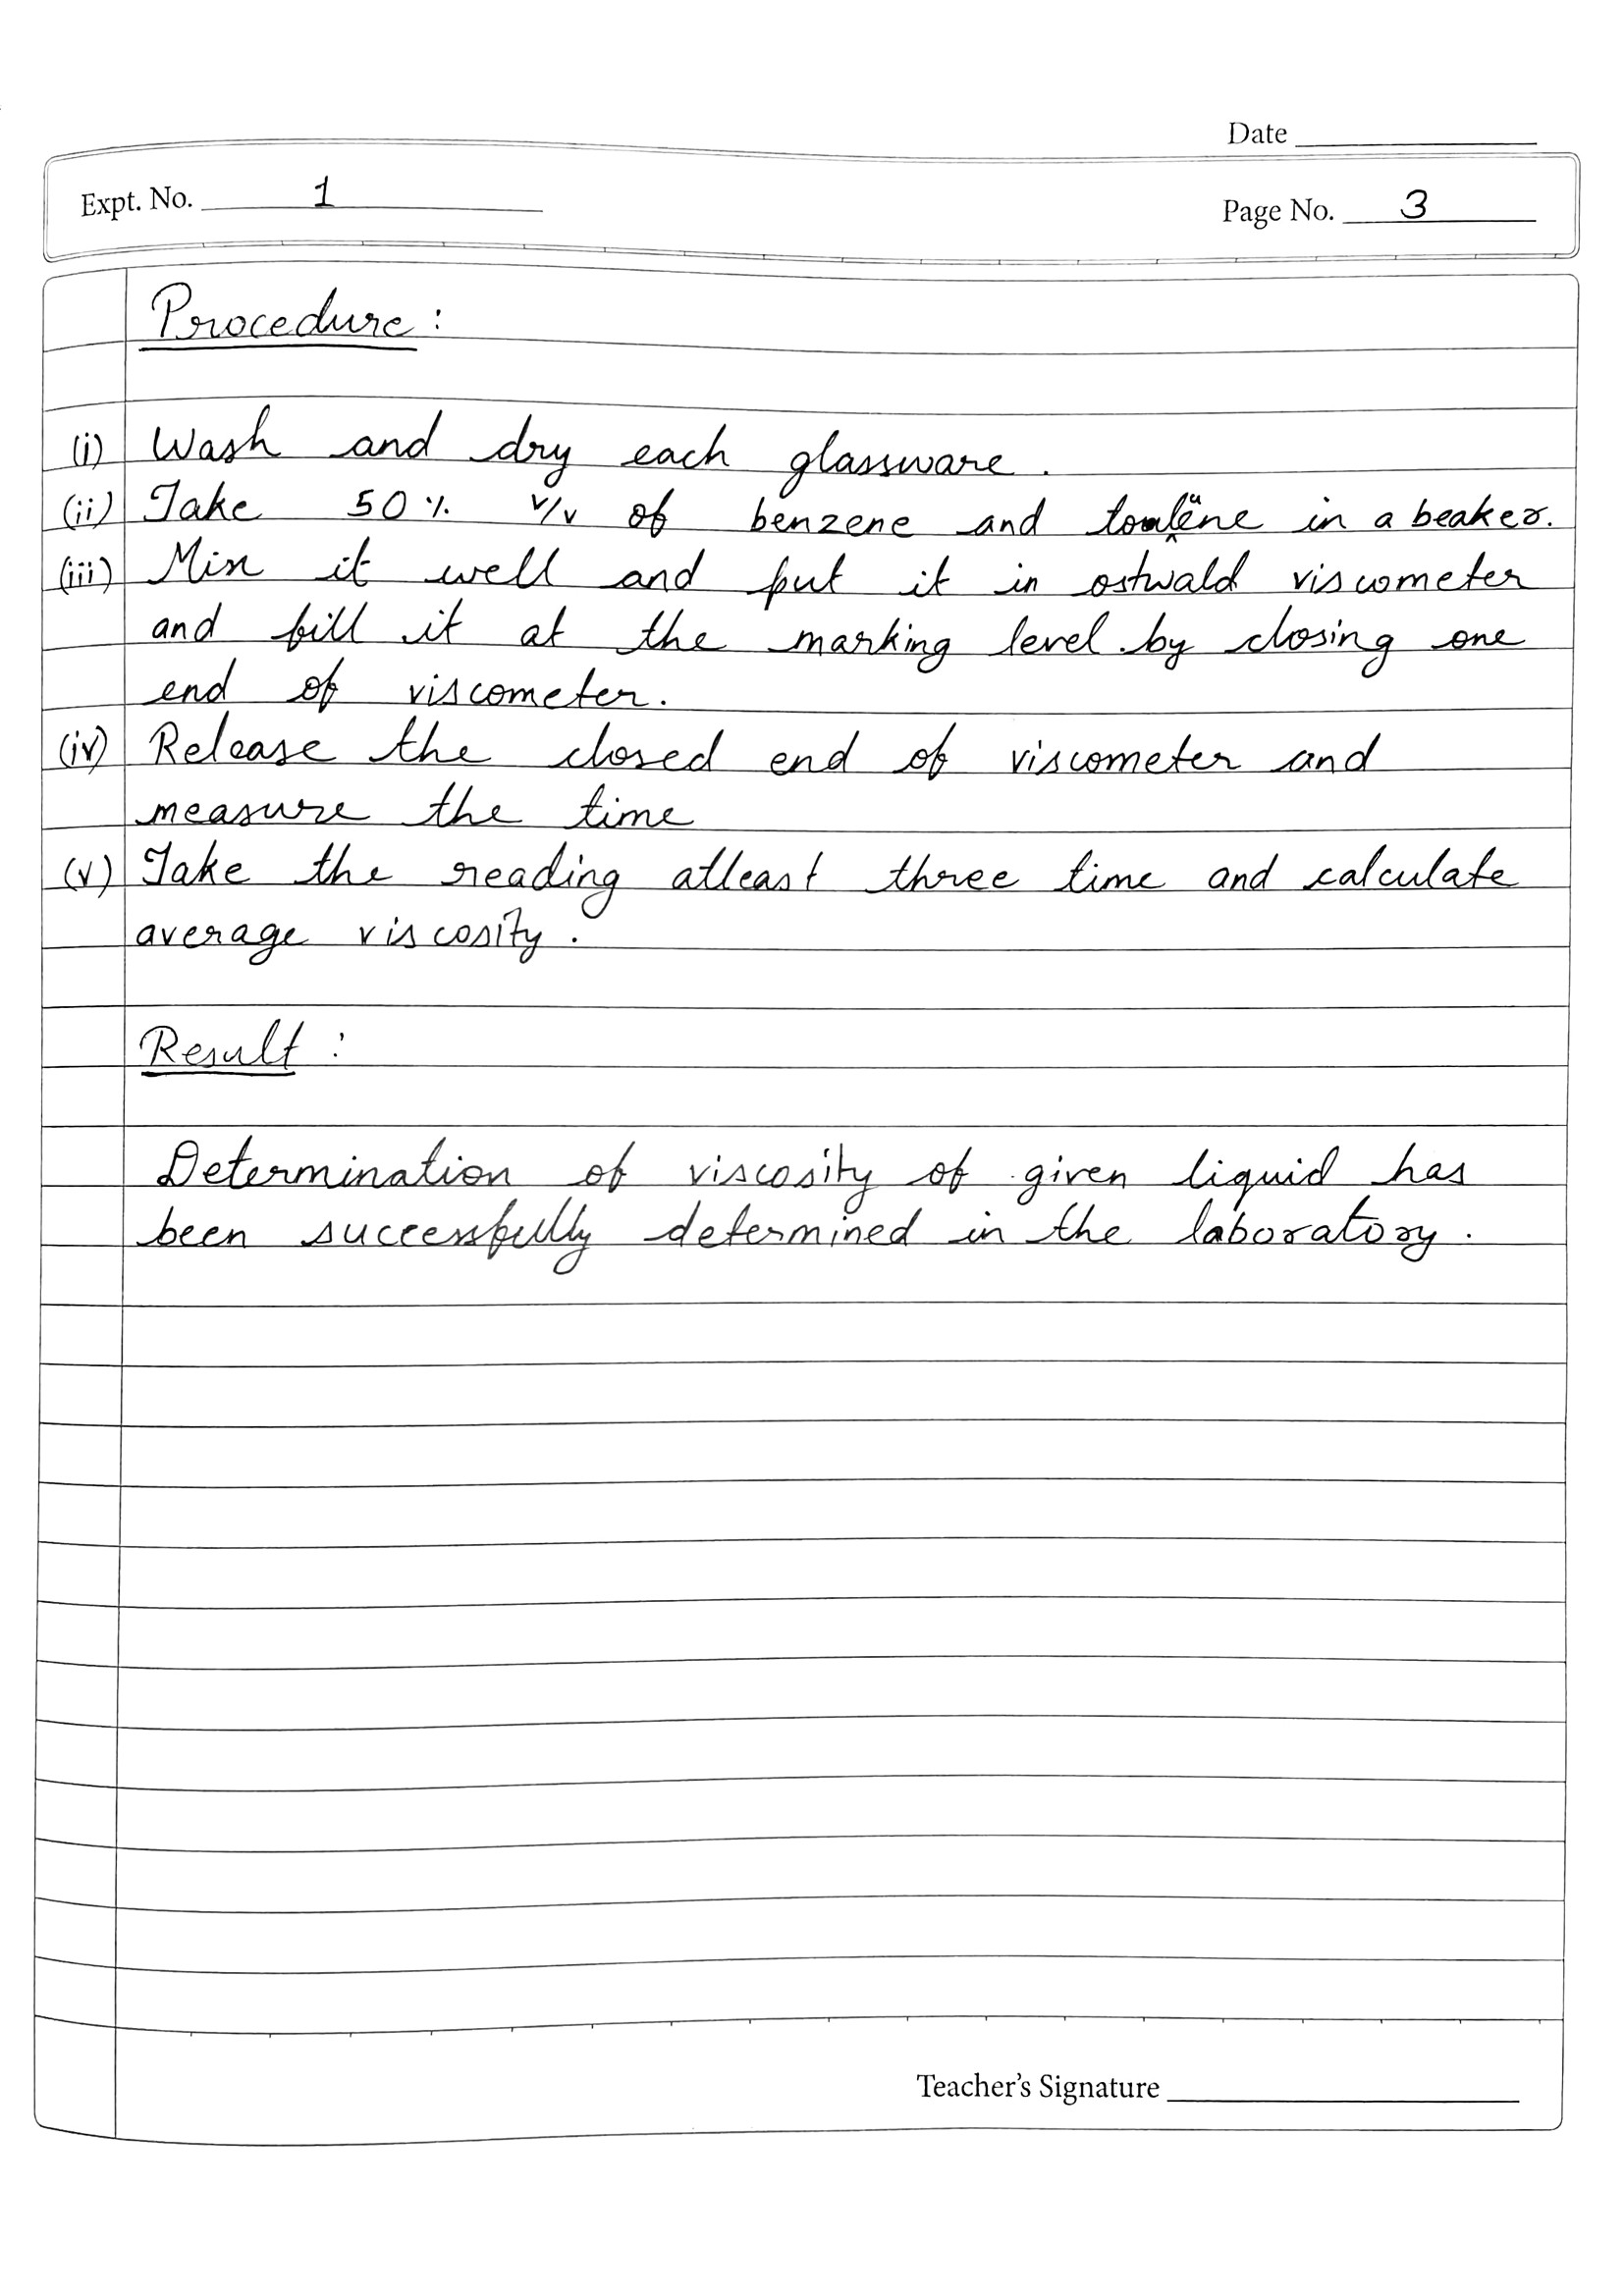 Date
Expt. No. 1
Page No. 3
Procedure :
(i) Wash and dry each glassware.
(ii) Take 50% v/v of benzene and toluene in a beaker.
(iii) Mix it well and put it in ostwald viscometer
and fill it at the marking level by closing one
end of viscometer.
(iv) Release the closed end of viscometer and
measure the time
(v) Take the reading atleast three time and calculate
average viscosity.
Result :
Determination of viscosity of given liquid has
been successfully determined in the laboratory.
Teacher's Signature